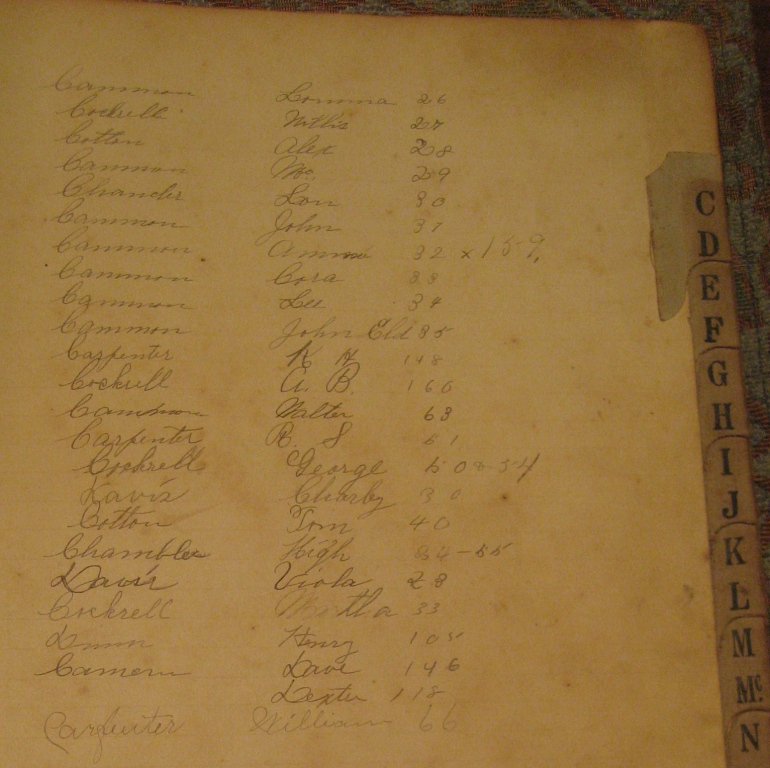 Cammon Lomma 26
Cockrell Willis 27
Cotton Alex 28
Cammon Wm. 29
Chander Lon 30
Cammon John 31
Cammon Ammi 32 x 159
Cammon Cora 33
Cammon Lee 34
Cammon John Eld 35
Carpenter K H 148
Cockrell A. B. 160
Cammon Walter 63
Carpenter R. S 61
Cockrell George 50 - 54
Davis Charly 30
Cotton Tom 40
Chambler High 84-55
Davis Viola 28
Cockrell Martha 33
Dunn Henry 105
Camern Dave 146
Dexter 118
Carpenter William 66
C
D
E
F
G
H
I
J
K
L
M
Mc
N